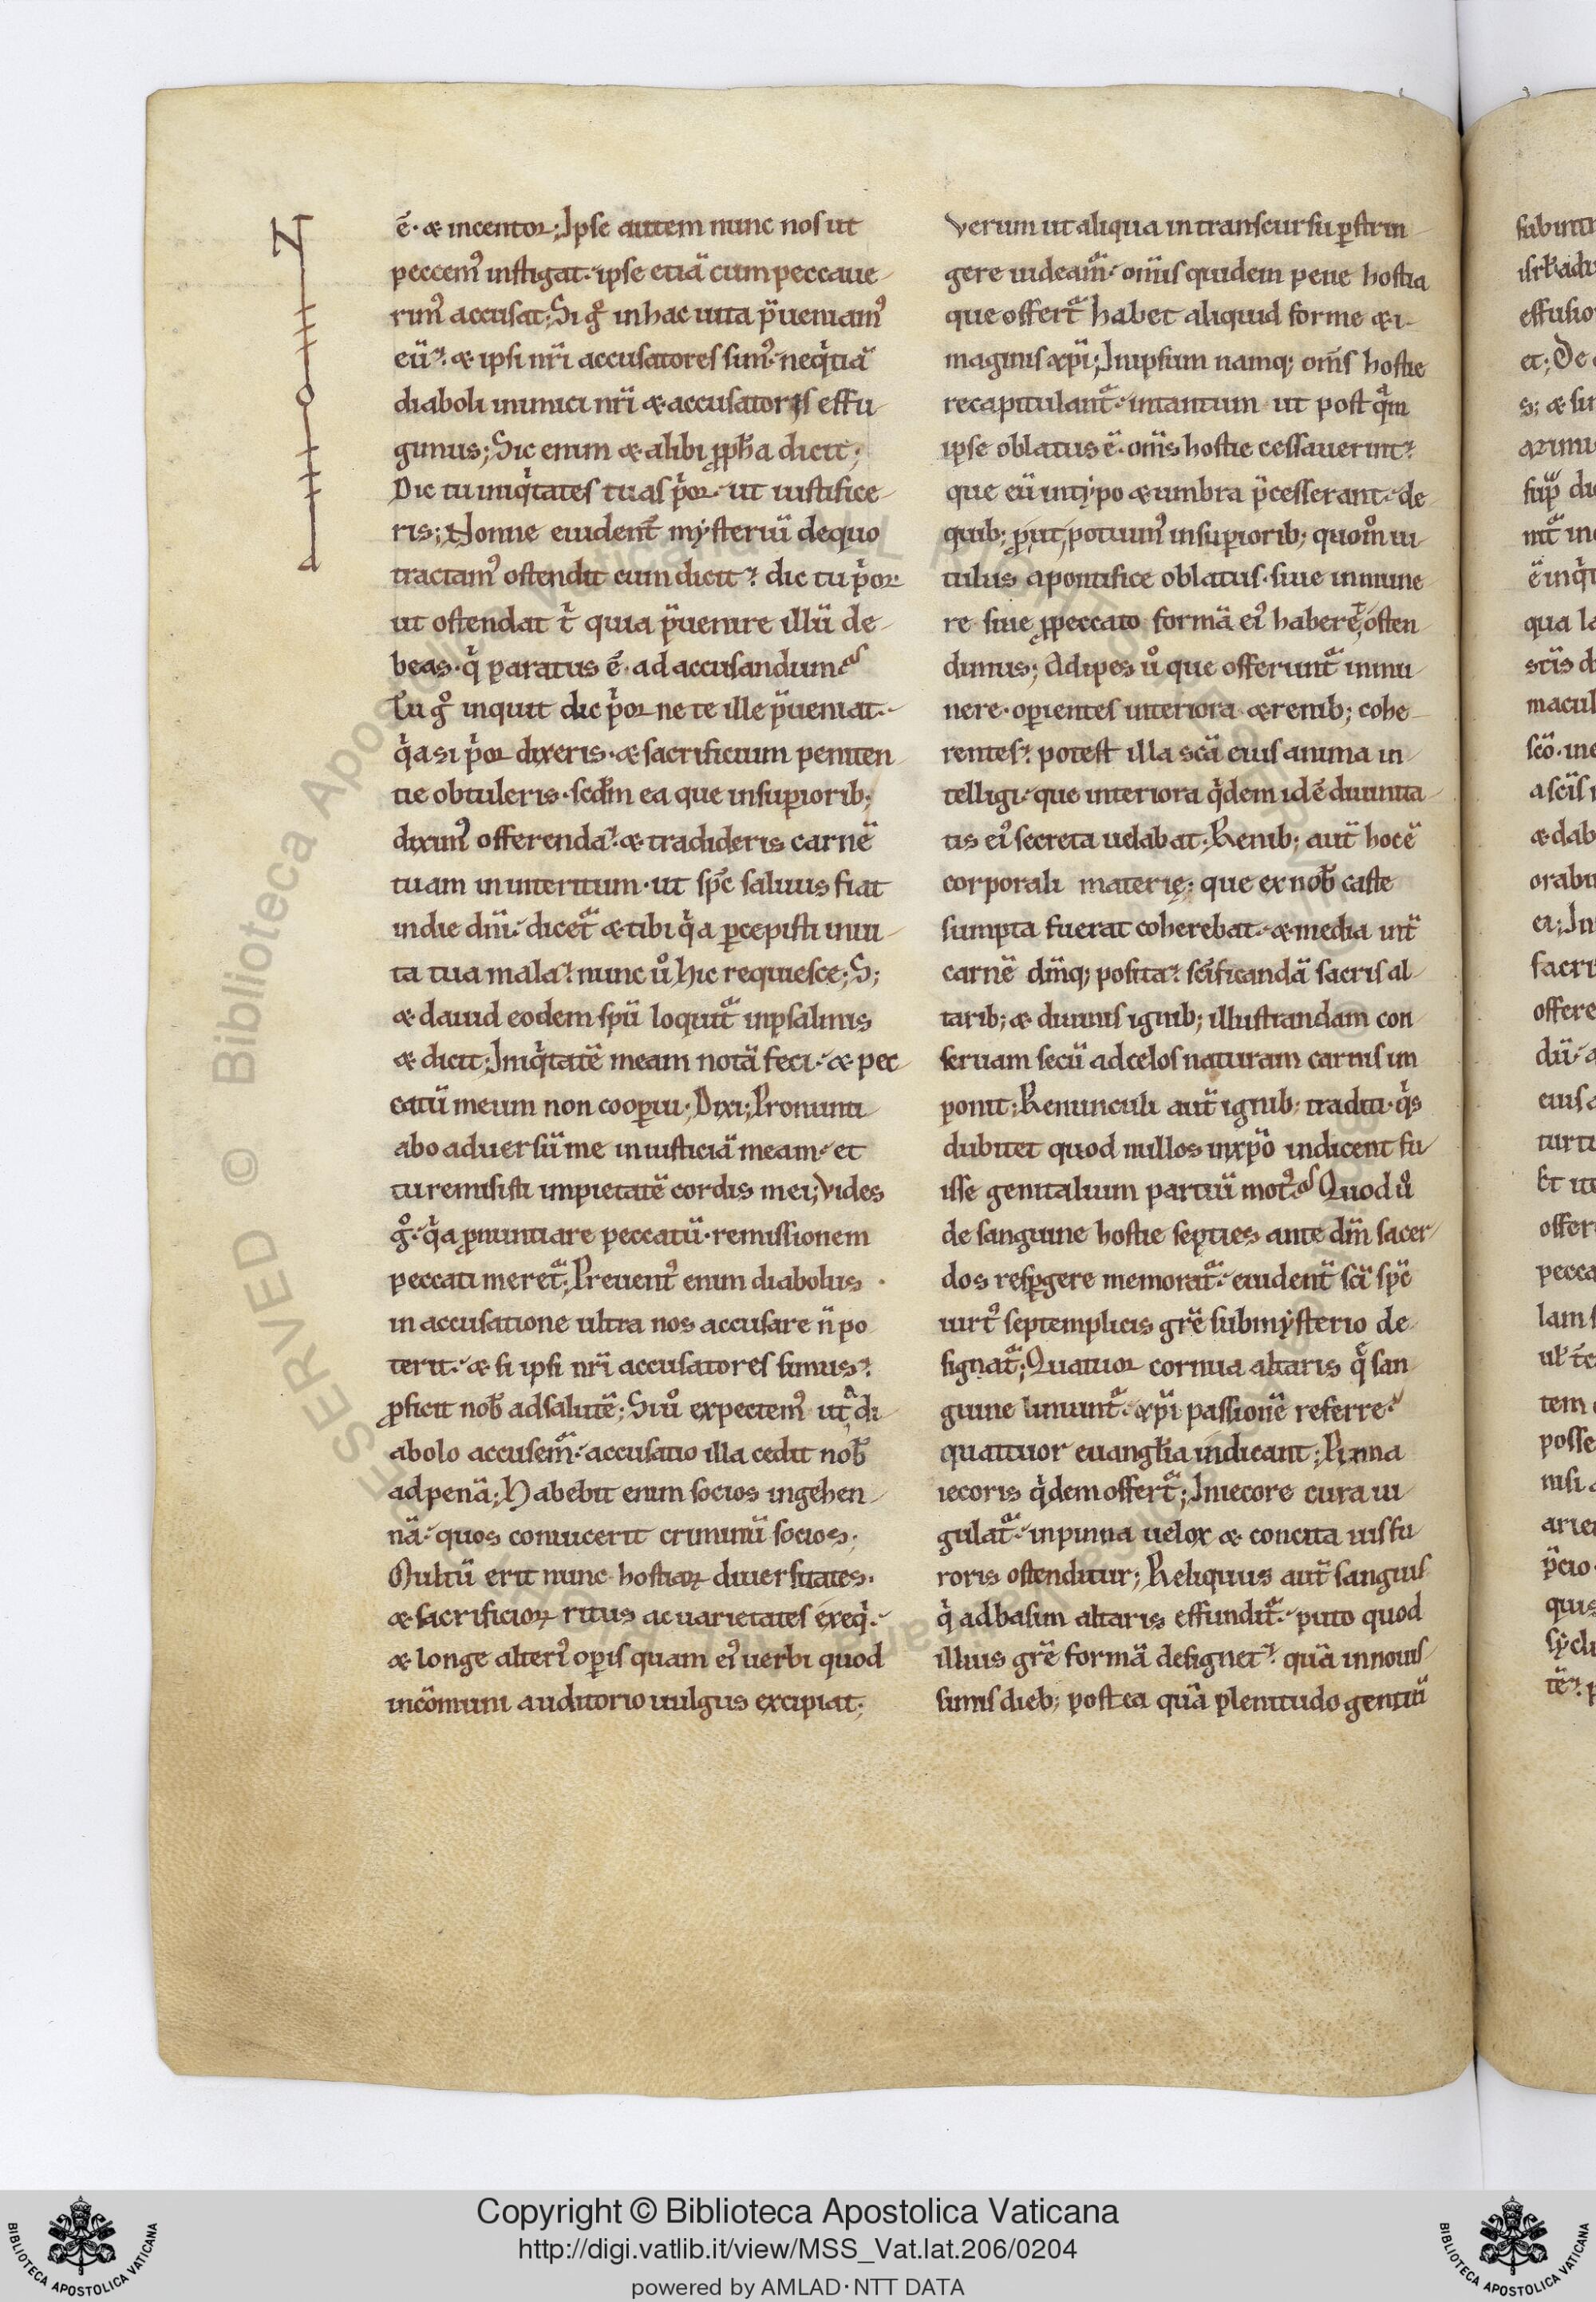 Nota
ē· æ incentor; Ipse autem nunc nos ut
peccem᷒ instigat· ipse etiā cum peccaue
rim᷒ accusat; Si gͦ in hac uita p̄ueniam᷒
eū· æ ipsi nr̄i accusatores sim᷒· neqͥtiā
diaboli inimici nr̄i æ accusatoris effu
gimus; Sic enim æ alibi ꝓph̄a dicit;
Dic tu iniqͥtates tuas pͥor· ut iustifice
ris; Nonne euident᷒ mysteriū de quo
tractam᷒ ostendit cum dicit· dic tu pͥor
ut ostendat tͥ quia p̄uenire illū de
beas· qͥ paratus ē· ad accusandum
Tu gͦ inquit dic pͥor ne te ille p̄ueniat·
qͥa si pͥor dixeris· æ sacrificium peniten
tie obtuleris· scd̄m ea que in suꝑiorib;
dixim᷒ offerenda· æ tradideris carnē
tuam in interitum· ut sp̄c saluus fiat
in die dn̄i· dicet᷑ æ tibi qͥa ꝑcepisti in ui
ta tua mala· nunc uͦ hic requiesce; S;
æ dauid eodem sp̄ū loquit᷑ in psalmis
æ dicit; Iniqͥtatē meam notā feci· æ pec
catū meum non cooꝑui; Dixi; Pronunti
abo aduersū me iniusticiā meam· et
tu remisisti impietatē cordis mei; Vides
gͦ· qͥa ꝓnuntiare peccatū· remissionem
peccati meret᷑; Preuent᷒ enim diabolus
in accusatione ultra nos accusare n̄ po
terit· æ si ipsi nr̄i accusatores simus·
ꝓficit nob̄ ad salutē; Si uͦ expectem᷒ ut a di
abolo accusem᷑· accusatio illa cedit nob̄
ad penā; Habebit enim socios in gehen
nā· quos conuicerit criminū socios;
Multū erit nunc hostiaꝝ diuersitates·
æ sacrificioꝝ ritus ac uarietates exeqͥ·
æ longe alteri᷒ oꝑis quam ei᷒ uerbi quod
in cōmuni auditorio uulgus excipiat;
Verum ut aliqua in transcursu ꝑstrin
gere uideam᷑· om̄is quidem pene hostia
que offert᷑ habet aliquid forme æ i
maginis xp̄i; In ipsum namq; om̄s hostie
recapitulant᷑· in tantum ut post qͣm
ipse oblatus ē· om̄s hostie cessauerint·
que eū in typo æ umbra p̄cesserant· de
quib; ꝓut potuim᷒ in suꝑiorib; quom̊ ui
tulus a pontifice oblatus· siue in mune
re siue ꝓ peccato formā ei᷒ haberet osten
dimus; Adipes uͦ que offerunt᷑ in mu
nere· oꝑientes interiora æ renib; cohe
rentes· potest illa sc̄a eius anima in
telligi· que interiora qͥdem id ē diuinita
tis ei᷒ secreta uelabat; Renib; aut̄ hoc ē
corporali materię; que ex nob̄ caste
sumpta fuerat coherebat· æ media int̄
carnē dm̄q; posita· sc̄ificandā sacris al
tarib; æ diuinis ignib; illustrandam con
seruam secū ad celos naturam carnis im
ponit; Renunculi aut̄ ignib; traditi· qͥs
dubitet quod nullos in xp̄o indicent fu
isse genitalium partiū mot᷒ Quod uͦ
de sanguine hostie septies ante dm̄ sacer
dos resꝑgere memorat᷑· euident̄ sc̄i sp̄c
uirt᷒ septemplicis gr̄e sub mysterio de
signat᷑; Quatuor cornua altaris qͥ san
guine linunt᷑· xp̄i passionē referre·
quattuor euangl̄ia indicant; Pinna
iecoris qͥdem offert᷑; In iecore cura iu
gulat᷑· in pinna uelox æ concita uis fu
roris ostenditur; Reliquus aut̄ sanguis
qͥ ad basim altaris effundit᷑· puto quod
illius gr̄e formā designet· quā in nouis
simis dieb; postea quā plenitudo gentiū
Copyright © Biblioteca Apostolica Vaticana
http://digi.vatlib.it/view/MSS_Vat.lat.206/0204
powered by AMLAD·NTT DATA
BIBLIOTECA APOSTOLICA VATICANA
BIBLIOTECA APOSTOLICA VATICANA